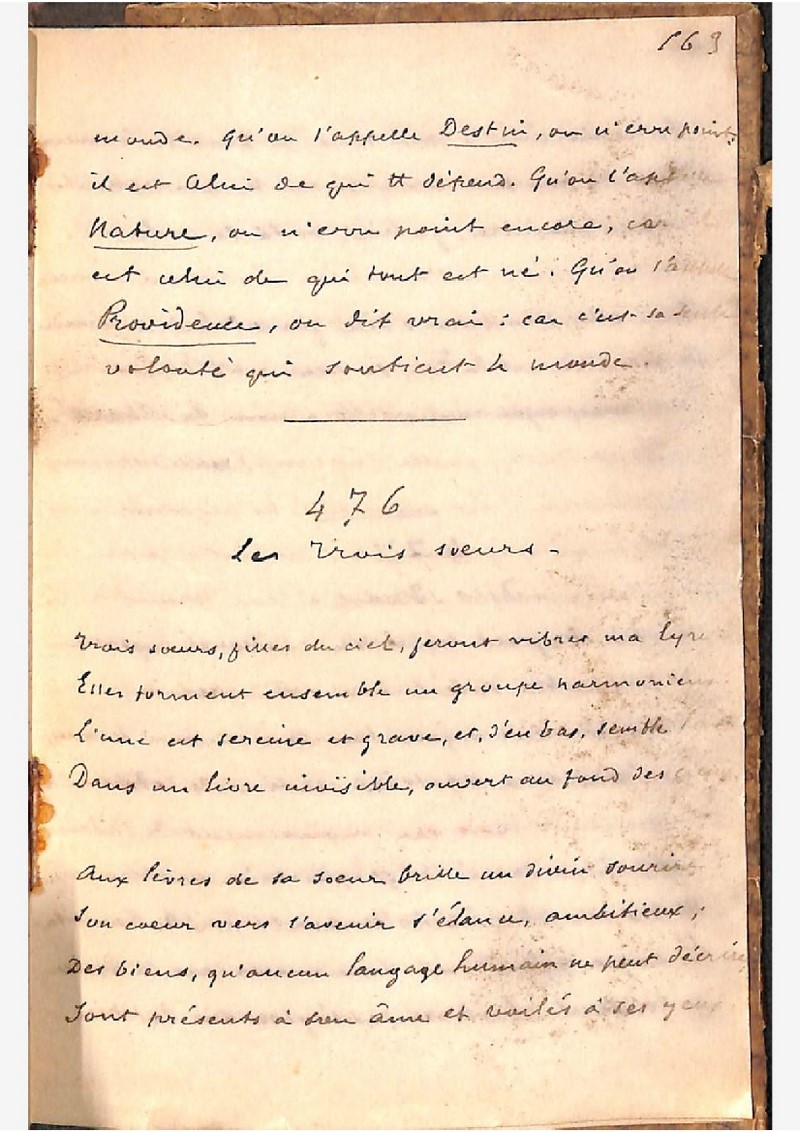 169
monde. Qu'on l'appelle Destin, on n'erre point:
il est Celui de qui tt dépend. Qu'on l'app
Nature, on n'erre point encore, car
est celui de qui tout est né. Qu'on l'appelle
Providence, on dit vrai : car c'est sa seule
volonté qui soutient le monde.
476
Les Trois soeurs -
Trois soeurs, filles du ciel, feront vibrer ma lyre
Elles forment ensemble un groupe harmonieux
L'une est sereine et grave, et, d'en bas, semble
Dans un livre invisible, ouvert au fond des
Aux lèvres de sa soeur brille un divin sourire
Son coeur vers l'avenir s'élance, ambitieux ;
Des biens, qu'aucun langage humain ne peut décrire
Sont présents à son âme et voilés à ses yeux